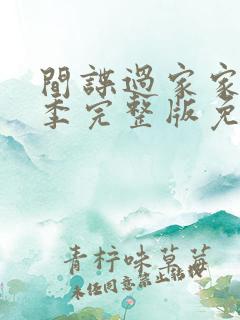 間諜過家家
季完整版免
青柠味草莓
未经同意禁止转载